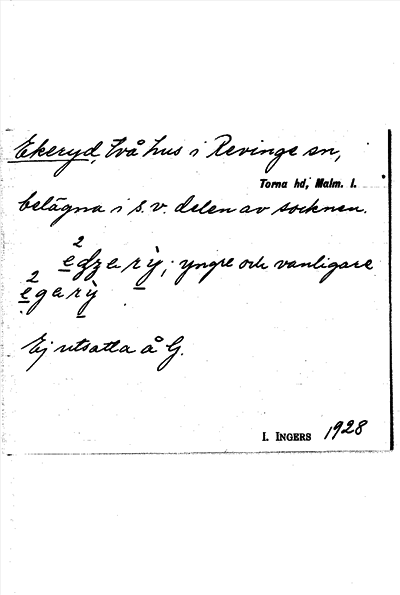 Ekeryd, två hus i Revinge sn,
Torna hd, Malm. l.
belägna i s.v. delen av socknen.
yngre och vanligare
Ej utsatta å G.
I. INGERS 1928